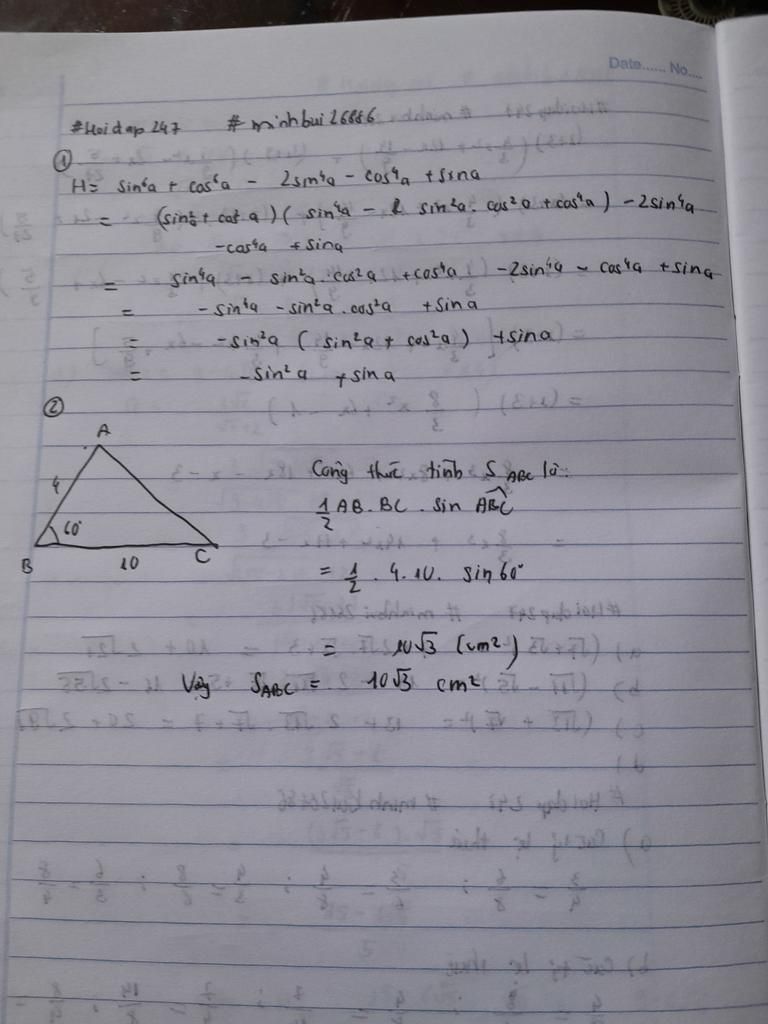 Date...... No....
#Hoidap247 #minhbui26886
①
H= sin⁶a + cos⁶a - 2sin⁴a - cos⁴a + sina
= (sin²a + cos²a)(sin⁴a - sin²a.cos²a + cos⁴a) - 2sin⁴a
-cos⁴a + sina
= sin⁴a - sin²a.cos²a + cos⁴a - 2sin⁴a - cos⁴a + sina
= -sin⁴a - sin²a.cos²a + sina
= -sin²a (sin²a + cos²a) + sina
= -sin²a + sina
②
A
4
60°
B 10 C
Công thức tính S ABC là:
1/2 AB.BC.sin ABC
= 1/2 .4.10. sin60°
= 10√3 (cm²)
Vậy SABC = 10√3 cm²